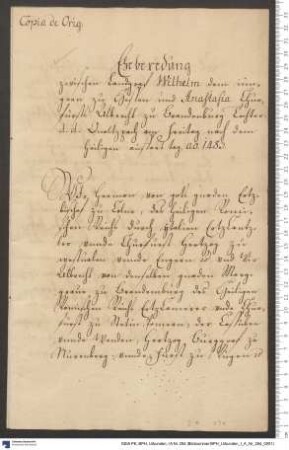 Copia de Orig.
Eheberedung
zwischen Landgraf Wilhelm dem jün-
gern zu Hessen und Anastasia Chur-
fürst Albrecht zu Brandenburg Tochter
d. d. am Freitag nach dem
heiligen tag ao. 148
Wir Herman von gots gnaden Ertz-
bischof zu Colne, des heiligen Romi-
schen Reichs durch Ertzcantz-
ler vnnde Churfurst Hertzog zu
westualen vnnde Engern vnd Wir
Albrecht von denselben gnaden Marg-
graue zu Brandenburg des heiligen
Romischen Reichs Ertzkamerer vnde Chur-
furst zu Stetin, Pomern, der Cassuben
vnnde Wenden, Hertzog Burggraf zu
Nurmberg vnnde furst zu Rugen